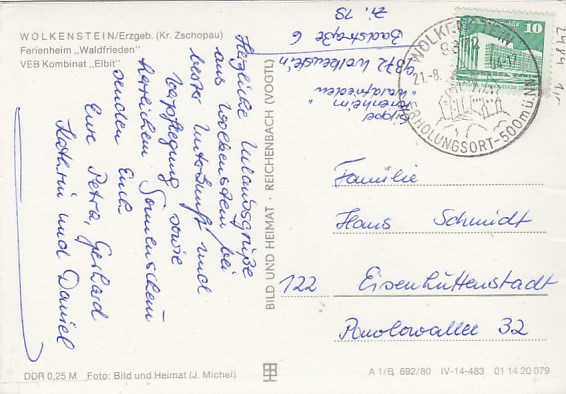 WOLKENSTEIN/Erzgeb. (Kr. Zschopau)
Ferienheim „Waldfrieden"
VEB Kombinat „Elbit"
Herzliche Urlaubsgrüße
aus Wolkenstein bei
bester Unterkunft und
Verpflegung sowie
herrlichen Sonnenschein
senden Euch
Eure Petra, Gerhard
Kathrin und Daniel
Ferienheim
"Waldfrieden"
9372 Wolkenstein
Badstraße 6
Zi. 19
BILD UND HEIMAT · REICHENBACH (VOGTL)
WOLKENSTEIN
9372
21.-8.
ERHOLUNGSORT-500m ü.NN
10
Familie
Hans Schmidt
122 Eisenhüttenstadt
32
DDR 0,25 M Foto: Bild und Heimat (J. Michel)
A 1/B 692/80 IV-14-483 01 14 20 079